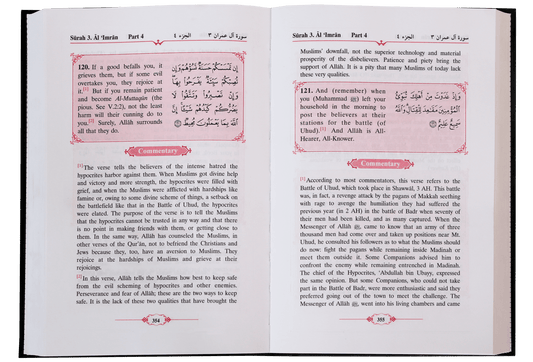 Sûrah 3. Âl 'Imrân Part 4 الجزء ٤ سورة آل عمران ٣
120. If a good befalls you, it
grieves them, but if some evil
overtakes you, they rejoice at
it.[1] But if you remain patient
and become Al-Muttaqûn (the
pious. See V.2:2), not the least
harm will their cunning do to
you.[2] Surely, Allâh surrounds
all that they do.
إِن تَمْسَسْكُمْ حَسَنَةٌ تَسُؤْهُمْ وَإِن
تُصِبْكُمْ سَيِّئَةٌ يَفْرَحُوا۟ بِهَا
وَإِن تَصْبِرُوا۟ وَتَتَّقُوا۟ لَا
يَضُرُّكُمْ كَيْدُهُمْ شَيْـًٔا إِنَّ
ٱللَّهَ بِمَا يَعْمَلُونَ مُحِيطٌ
Commentary
[1] The verse tells the believers of the intense hatred the
hypocrites harbor against them. When Muslims got divine help
and victory and more strength, the hypocrites were filled with
grief, and when the Muslims were afflicted with hardships like
famine or, owing to some divine scheme of things, a setback on
the battlefield like that in the Battle of Uhud, the hypocrites
were elated. The purpose of the verse is to tell the Muslims
that the hypocrites cannot be trusted in any way and that there
is no point in making friends with them, or getting close to
them. In the same way, Allâh has counseled the Muslims, in
other verses of the Qur'ân, not to befriend the Christians and
Jews because they, too, have an aversion to Muslims. They
rejoice at the hardships of Muslims and grieve at their
rejoicings.
[2] In this verse, Allâh tells the Muslims how best to keep safe
from the evil scheming of hypocrites and other enemies.
Perseverance and fear of Allâh; these are the two ways to keep
safe. It is the lack of these two qualities that have brought the
354
Sûrah 3. Âl 'Imrân Part 4 الجزء ٤ سورة آل عمران ٣
Muslims' downfall, not the superior technology and material
prosperity of the disbelievers. Patience and piety bring the
support of Allâh. It is a pity that many Muslims of today lack
these very qualities.
121. And (remember) when
you (Muhammad ﷺ) left your
household in the morning to
post the believers at their
stations for the battle (of
Uhud).[1] And Allâh is All-
Hearer, All-Knower.
وَإِذْ غَدَوْتَ مِنْ أَهْلِكَ تُبَوِّئُ
ٱلْمُؤْمِنِينَ مَقَـٰعِدَ لِلْقِتَالِ وَٱللَّهُ
سَمِيعٌ عَلِيمٌ
Commentary
[1] According to most commentators, this verse refers to the
Battle of Uhud, which took place in Shawwâl, 3 AH. This battle
was, in fact, a revenge attack by the pagans of Makkah seething
with rage to avenge the humiliation they had suffered the
previous year (in 2 AH) in the battle of Badr when seventy of
their men had been killed, and as many captured. When the
Messenger of Allâh ﷺ, came to know that an army of three
thousand men had come over and taken up positions near Mt.
Uhud, he consulted his followers as to what the Muslims should
do now: fight the pagans while remaining inside Madinah or
meet them outside it. Some Companions advised him to
confront the enemy while remaining entrenched in Madinah.
The chief of the Hypocrites, 'Abdullah bin Ubayy, expressed
the same opinion. But some Companions, who could not take
part in the Battle of Badr, were more enthusiastic and said they
preferred going out of the town to meet the challenge. The
Messenger of Allâh ﷺ, went into his living chambers and came
355